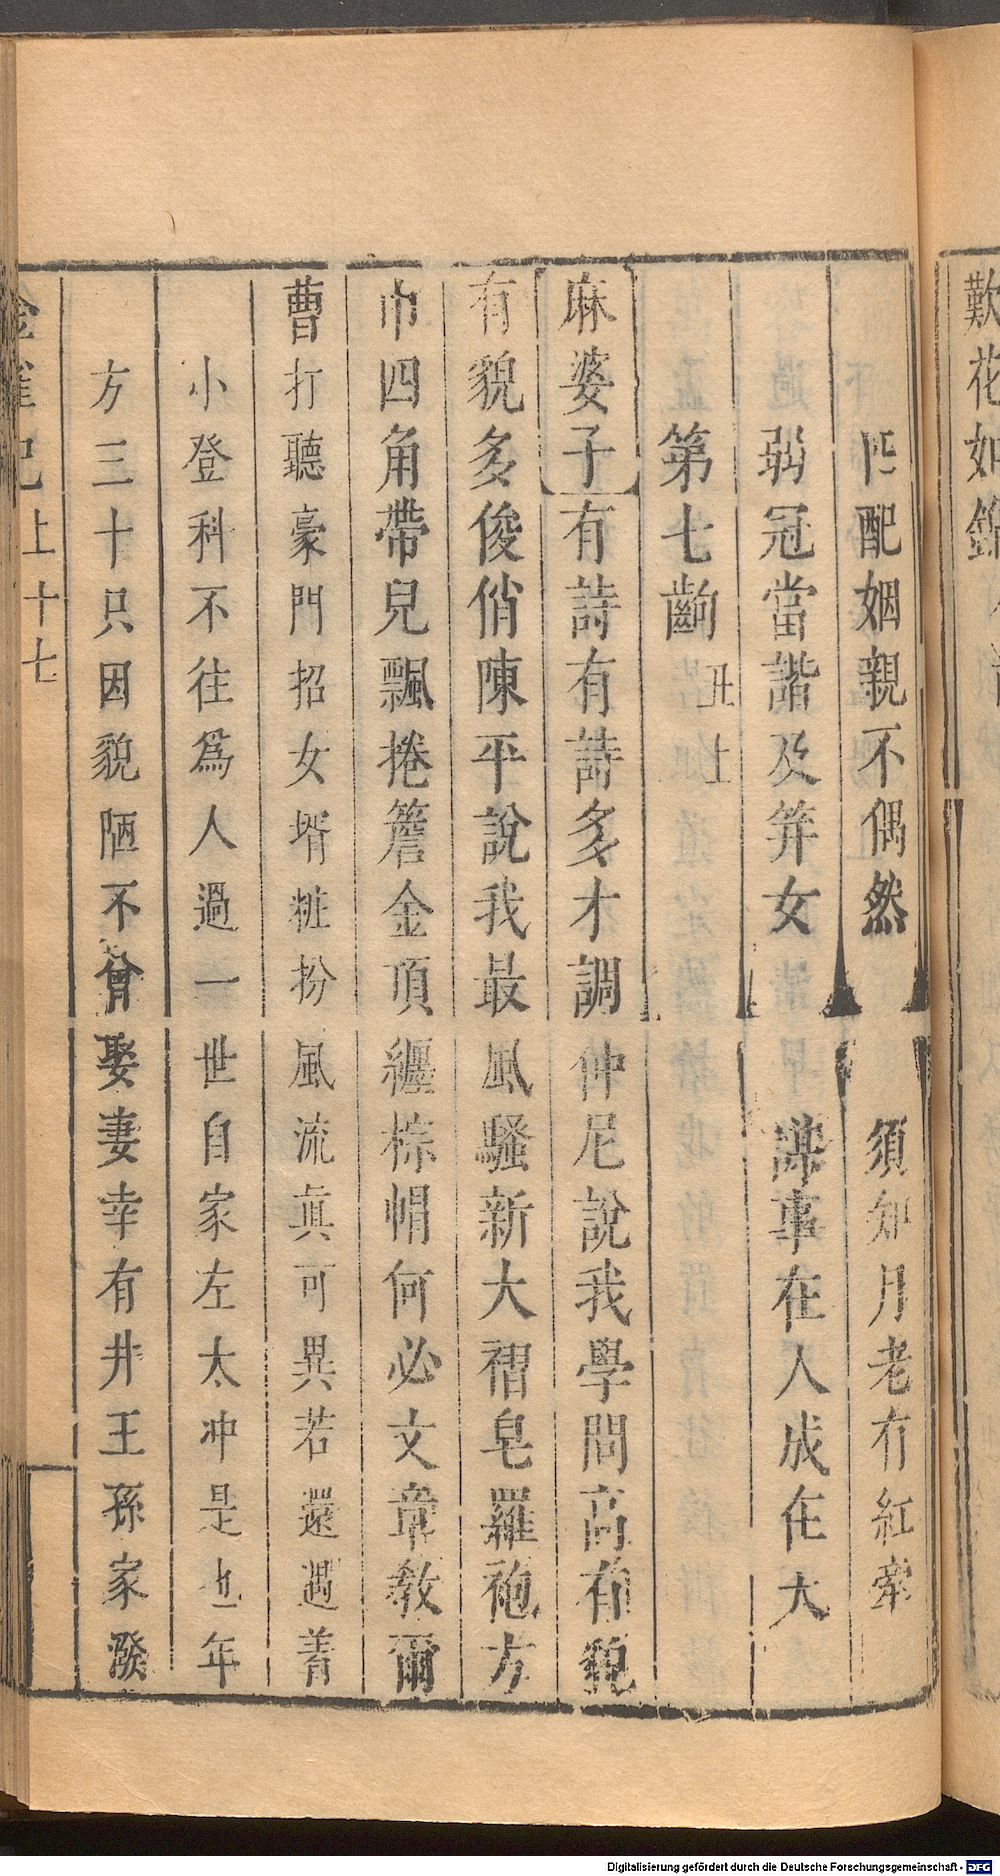 歎花如錦
匹配姻親不偶然　須知月老有紅牽
弱冠當諧及笄女　謀事在人成在天
第七齣　丑上
麻婆子有詩有詩多才調仲尼說我學問高有貌
有貌多俊俏陳平說我最風騷新大褶皂羅袍方
巾四角帶兒飄捲簷金頂纏棕帽何必文章教爾
曹打聽豪門招女壻粧扮風流眞可異若還遇着
小登科不往爲人過一世自家左太冲是也年
方三十只因貌陋不曾娶妻幸有井王孫家發
金雀記上十七
Digitalisierung gefördert durch die Deutsche Forschungsgemeinschaft - DFG